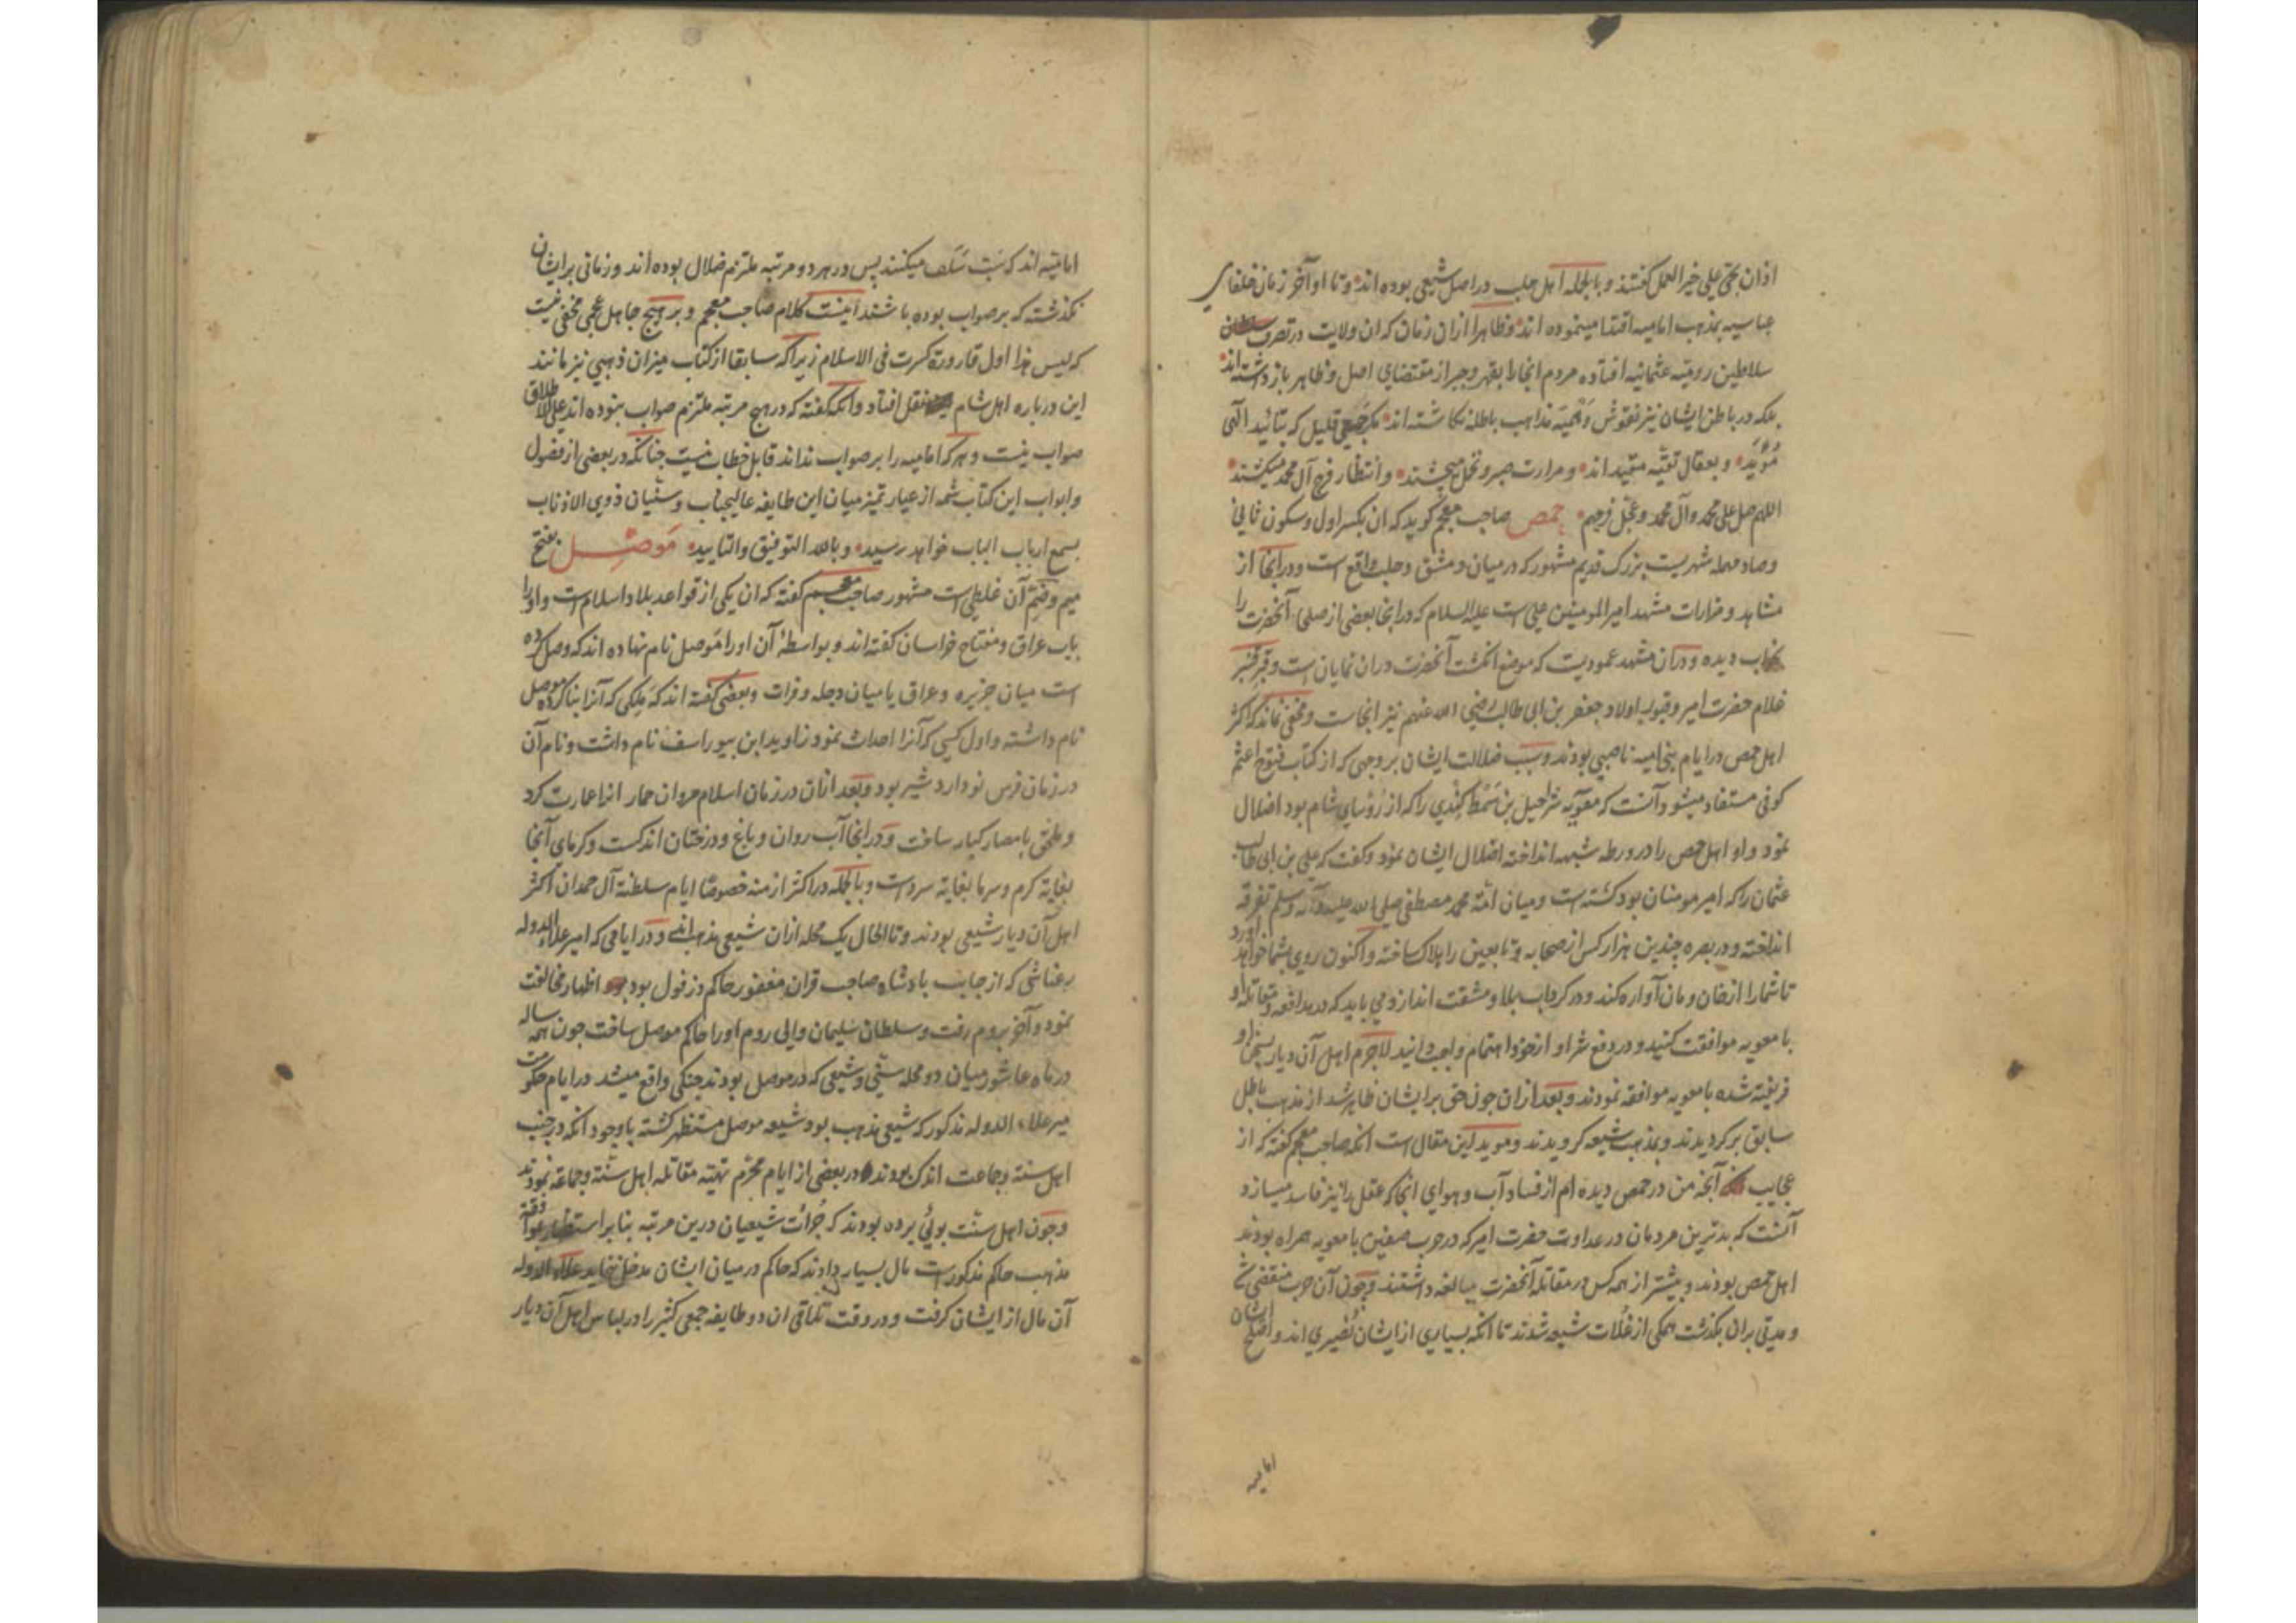 اذان بحی علی خیر العمل گفتند و بالجمله اهل حلب در اصل شیعی بوده اند و تا اواخر زمان خلفای
عباسیه بمذهب امامیه اقتدا مینموده اند و ظاهرا ازان زمان که ان ولایت در تصرف
سلاطین رومیه عثمانیه افتاده مردم انجا را بقهر و جبر از مقتضای اصل و ظاهر باز داشته اند
بلکه در باطن ایشان نیز نقوش وهمیه مذاهب باطله نکاشته اند مگر جمعی قلیل که بتائید الهی
مؤید و بعقال تقیه مقید اند و مرارت صبر و تحمل میچشند و انتظار فرج آل محمد میکشند
اللهم صل علی محمد وآل محمد وعجل فرجهم حمص صاحب معجم کوید که ان بکسر اول و سکون ثانی
و صاد مهمله شهریست بزرک قدیم مشهور که در میان دمشق و حلب واقع است و در انجا از
مشاهد و مزارات مشهد امیر المومنین علی است علیه السلام که در انجا بعضی از صلحی آنحضرت را
بخواب دیده و دران مشهد عمودیست که موضع انکشت آنحضرت دران نمایان است و قبر قنبر
غلام حضرت امیر و قبور اولاد جعفر بن ابی طالب رضی الله عنهم نیز انجاست و مخفی نماند که اکثر
اهل حمص در ایام بنی امیه ناصبی بودند و سبب ضلالت ایشان بر وجهی که از کتاب فتوح اعثم
کوفی مستفاد میشود آنست که معویه شراحیل بن سمط کندی را که از رؤسای شام بود اضلال
نمود و او اهل حمص را در ورطه شبهه انداخته اضلال ایشان نمود و کفت که علی بن ابی طالب
عثمان را که امیر مومنان بود کشته است و میان امة محمد مصطفی صلی الله علیه وآله وسلم تفرقه
انداخته و در بصره چندین هزار کس از صحابه و تابعین را هلاک ساخته و اکنون روی بشما خواهد آورد
تا شما را از خان و مان آواره کند و در کرداب بلا و مشقت اندازد می باید که در مدافعه و مقاتله او
با معویه موافقت کنید و در دفع شر او از خود اهتمام واجب دانید لاجرم اهل آن دیار بسخن او
فریفته شده با معویه موافقه نمودند و بعد ازان جون حق بر ایشان ظاهر شد از مذهب باطل
سابق بر کردیدند و بمذهب شیعه کرویدند و موید این مقال است انکه صاحب معجم کفته که از
عجایب آنجه من در حمص دیده ام از فساد آب و هوای انجا که عقل را نیز فاسد میسازد
آنست که بدترین مردمان در عداوت حضرت امیر که در حرب صفین با معویه همراه بودند
اهل حمص بودند و بیشتر از همه کس در مقاتله آنحضرت مبالغه داشتند و جون آن حرب منقضی شد
و مدتی بران بکذشت همکی از غلات شیعه شدند تا انکه بسیاری از ایشان نصیری اند و اصلح ایشان
امامیه
امامیه اند که سب سلف میکنند پس در هر دو مرتبه ملتزم ضلال بوده اند و زمانی بر ایشان
نکذشته که بر صواب بوده باشند اینست کلام صاحب معجم و بر هیج جاهل عجمی مخفی نیست
که لیس هذا اول قارورة کسرت فی الاسلام زیرا که سابقا از کتاب میزان ذهبی نیز مانند
این درباره اهل شام نقل افتاد و آنکه کفته که در هیج مرتبه ملتزم صواب نبوده اند علی الاطلاق
صواب نیست و هر که امامیه را بر صواب نداند قابل خطاب نیست جنانکه در بعضی از فصول
و ابواب این کتاب شمه از عیار تمیز میان این طایفه عالیجناب و سنیان ذوی الاذناب
بسمع ارباب الباب خواهد رسید و بالله التوفیق والتایید موصل بفتح
میم و ضم آن غلطی است مشهور صاحب معجم کفته که ان یکی از قواعد بلاد اسلام است و او را
باب عراق و مفتاح خراسان کفته اند و بواسطهٔ آن او را موصل نام نهاده اند که وصل کرده
است میان جزیره و عراق یا میان دجله و فرات و بعضی کفته اند که ملکی که آنرا بنا کرده موصل
نام داشته و اول کسی که آنرا احداث نمود زاوید ابن بیوراسف نام داشت و نام آن
در زمان فرس نوداردشیر بود و بعد ازان در زمان اسلام مروان حمار انرا عمارت کرد
و ملحق بامصار کبار ساخت و در انجا آب روان و باغ و درختان اندکست و کرمای آنجا
بغایة کرم و سرما بغایة سرد است و بالجمله در اکثر ازمنه خصوصا ایام سلطنة آل حمدان اکثر
اهل آن دیار شیعی بودند و تا الحال یک محله ازان شیعی مذهب اند و در ایامی که امیر علاء الدوله
رعناشی که از جانب بادشاه صاحب قران مغفور حاکم دزفول بود اظهار مخالفت
نمود و آخر بروم رفت و سلطان سلیمان والی روم او را حاکم موصل ساخت جون همه ساله
در ماه عاشور میان دو محله سنی و شیعی که در موصل بودند جنکی واقع میشد در ایام حکومت
میر علاء الدوله مذکور که شیعی مذهب بود شیعه موصل مستظهر کشته با وجود آنکه در جنب
اهل سنة و جماعت اندک بودند در بعضی از ایام محرم تهیه مقاتله اهل سنة و جماعة نمودند
و جون اهل سنت بوئی برده بودند که جرأت شیعیان درین مرتبه بنا بر استظهار بموافقة
مذهب حاکم مذکور است مال بسیار دادند که حاکم در میان ایشان مدخل ننماید علاء الدوله
آن مال از ایشان کرفت و در وقت تلاقی ان دو طایفه جمعی کثیر را در لباس اهل آن دیار